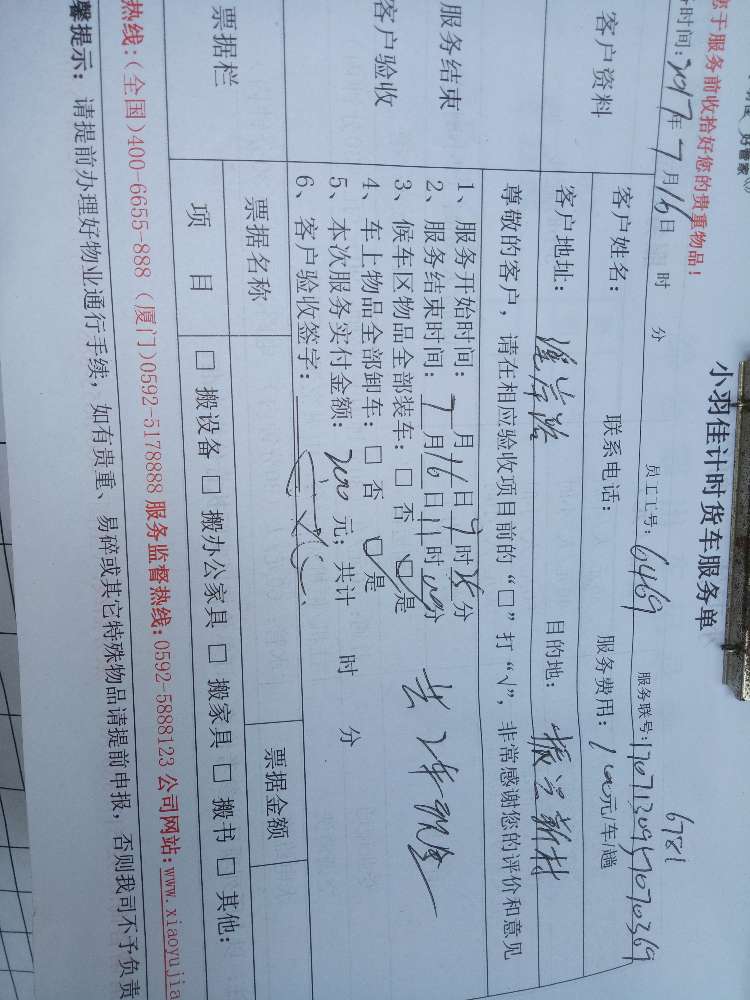 好管家
您于服务前收拾好您的贵重物品！
小羽佳计时货车服务单
时间：2017年7月16日 时 分 员工工号：6469 服务联号：1707130957070369
6781
客户资料
客户姓名： 联系电话： 服务费用：100元/车/趟
客户地址： 目的地：振兴新村
尊敬的客户，请在相应验收项目前的“□”打“√”，非常感谢您的评价和意见
服务结束
客户验收
1、服务开始时间：7月16日9时25分
2、服务结束时间：7月16日11时00分
3、候车区物品全部装车：□否 ☑是
4、车上物品全部卸车：□否 ☑是
5、本次服务实付金额：200元；共计 时 分
6、客户验收签字：
共2车现金
票据栏
票据名称 票据金额
项目 □搬设备 □搬办公家具 □搬家具 □搬书 □其他：
热线：(全国)400-6655-888 (厦门)0592-5178888 服务监督热线：0592-5888123 公司网站：www.xiaoyujia
馨提示：请提前办理好物业通行手续，如有贵重、易碎或其它特殊物品请提前申报，否则我司不予负责